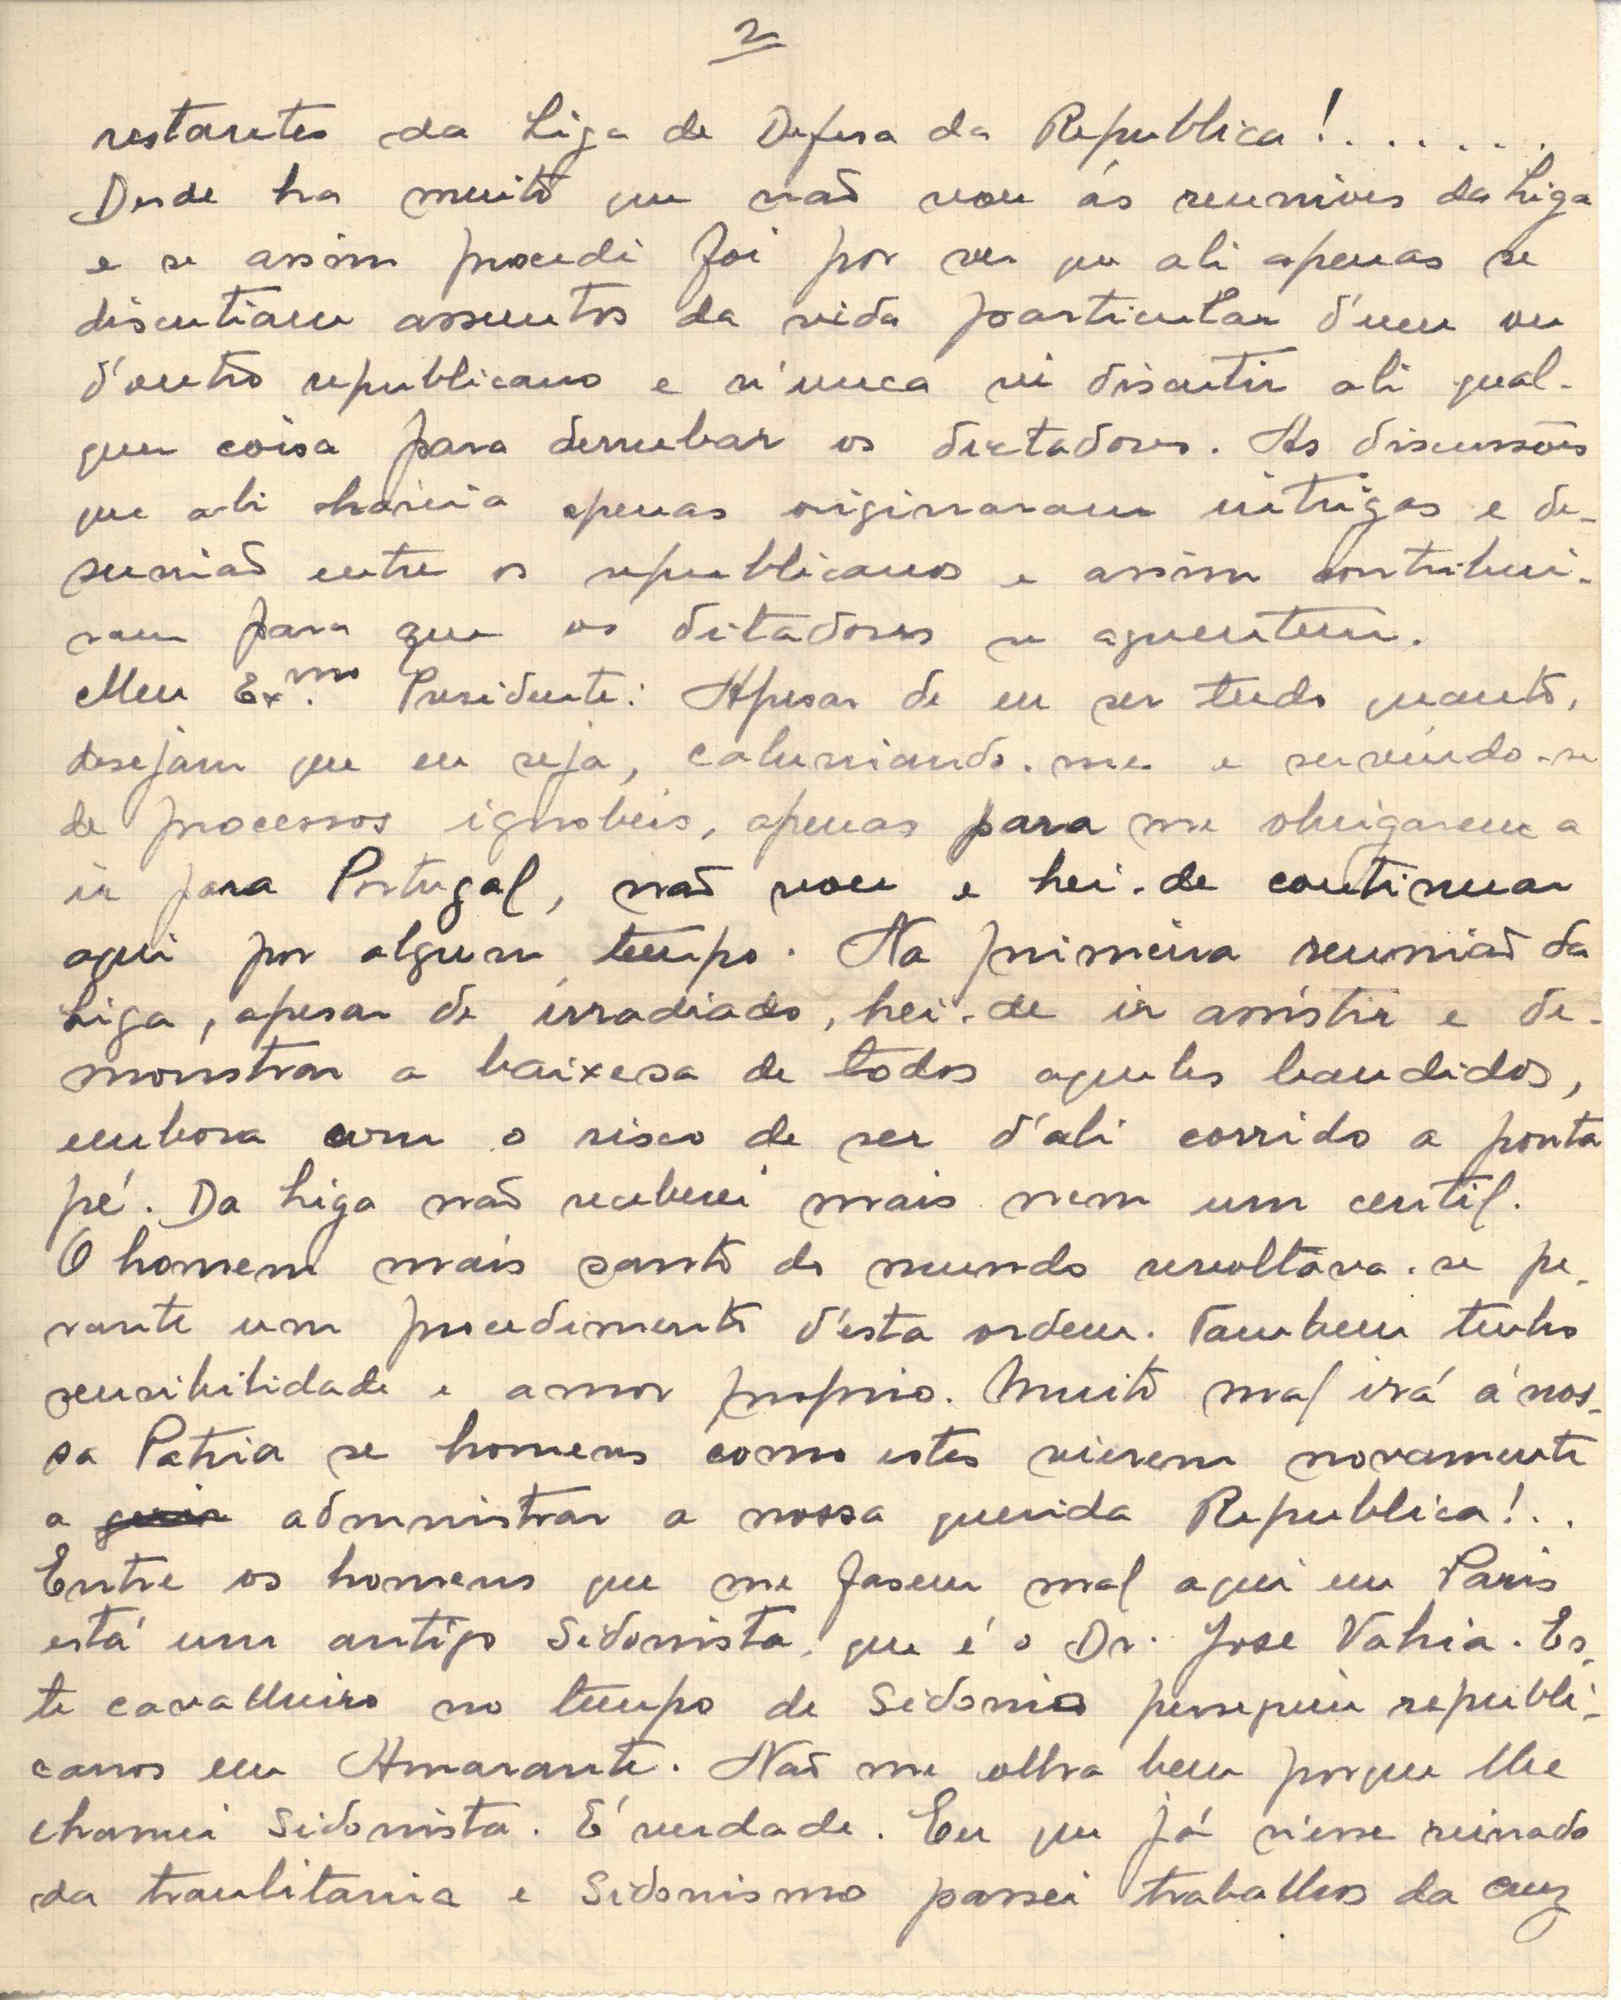 2
restantes da Liga de Defesa da Republica!.......
Desde ha muito que não vou ás reuniões da Liga
e se assim procedi foi por ver que ali apenas se
discutiam assuntos da vida particular d'um ou
d'outro republicano e n'unca vi discutir ali qual-
quer coisa para derrubar os dictadores. As discussões
que ali havia apenas originaram intrigas e de-
sunião entre os republicanos e assim contribui-
ram para que os ditadores se aguentem.
Meu Ex.mo Presidente: Apesar de eu ser tudo quanto,
desejam que eu seja, caluniando-me e servindo-se
de processos ignobeis, apenas para me obrigarem a
ir para Portugal, não vou e hei-de continuar
aqui por algum tempo. Na primeira reunião da
Liga, apesar de irradiado, hei-de ir assistir e de-
monstrar a baixesa de todos aqueles bandidos,
embora com o risco de ser d'ali corrido a ponta
pé. Da Liga não receberei mais nem um centil.
O homem mais santo do mundo revoltava-se pe-
rante um procedimento d'esta ordem. Tambem tenho
sensibilidade e amor proprio. Muito mal irá á nos-
sa Patria se homens como estes vierem novamente
a guir administrar a nossa querida Republica!..
Entre os homens que me fasem mal aqui em Paris
está um antigo Sidonista, que é o Dr. José Vahia. Es-
te cavalheiro no tempo de Sidonio perseguiu republi-
canos em Amarante. Não me olha bem porque lhe
chamei Sidonista. É verdade. Eu que já n'esse reinado
da traulitania e Sidonismo passei trabalhos da cruz